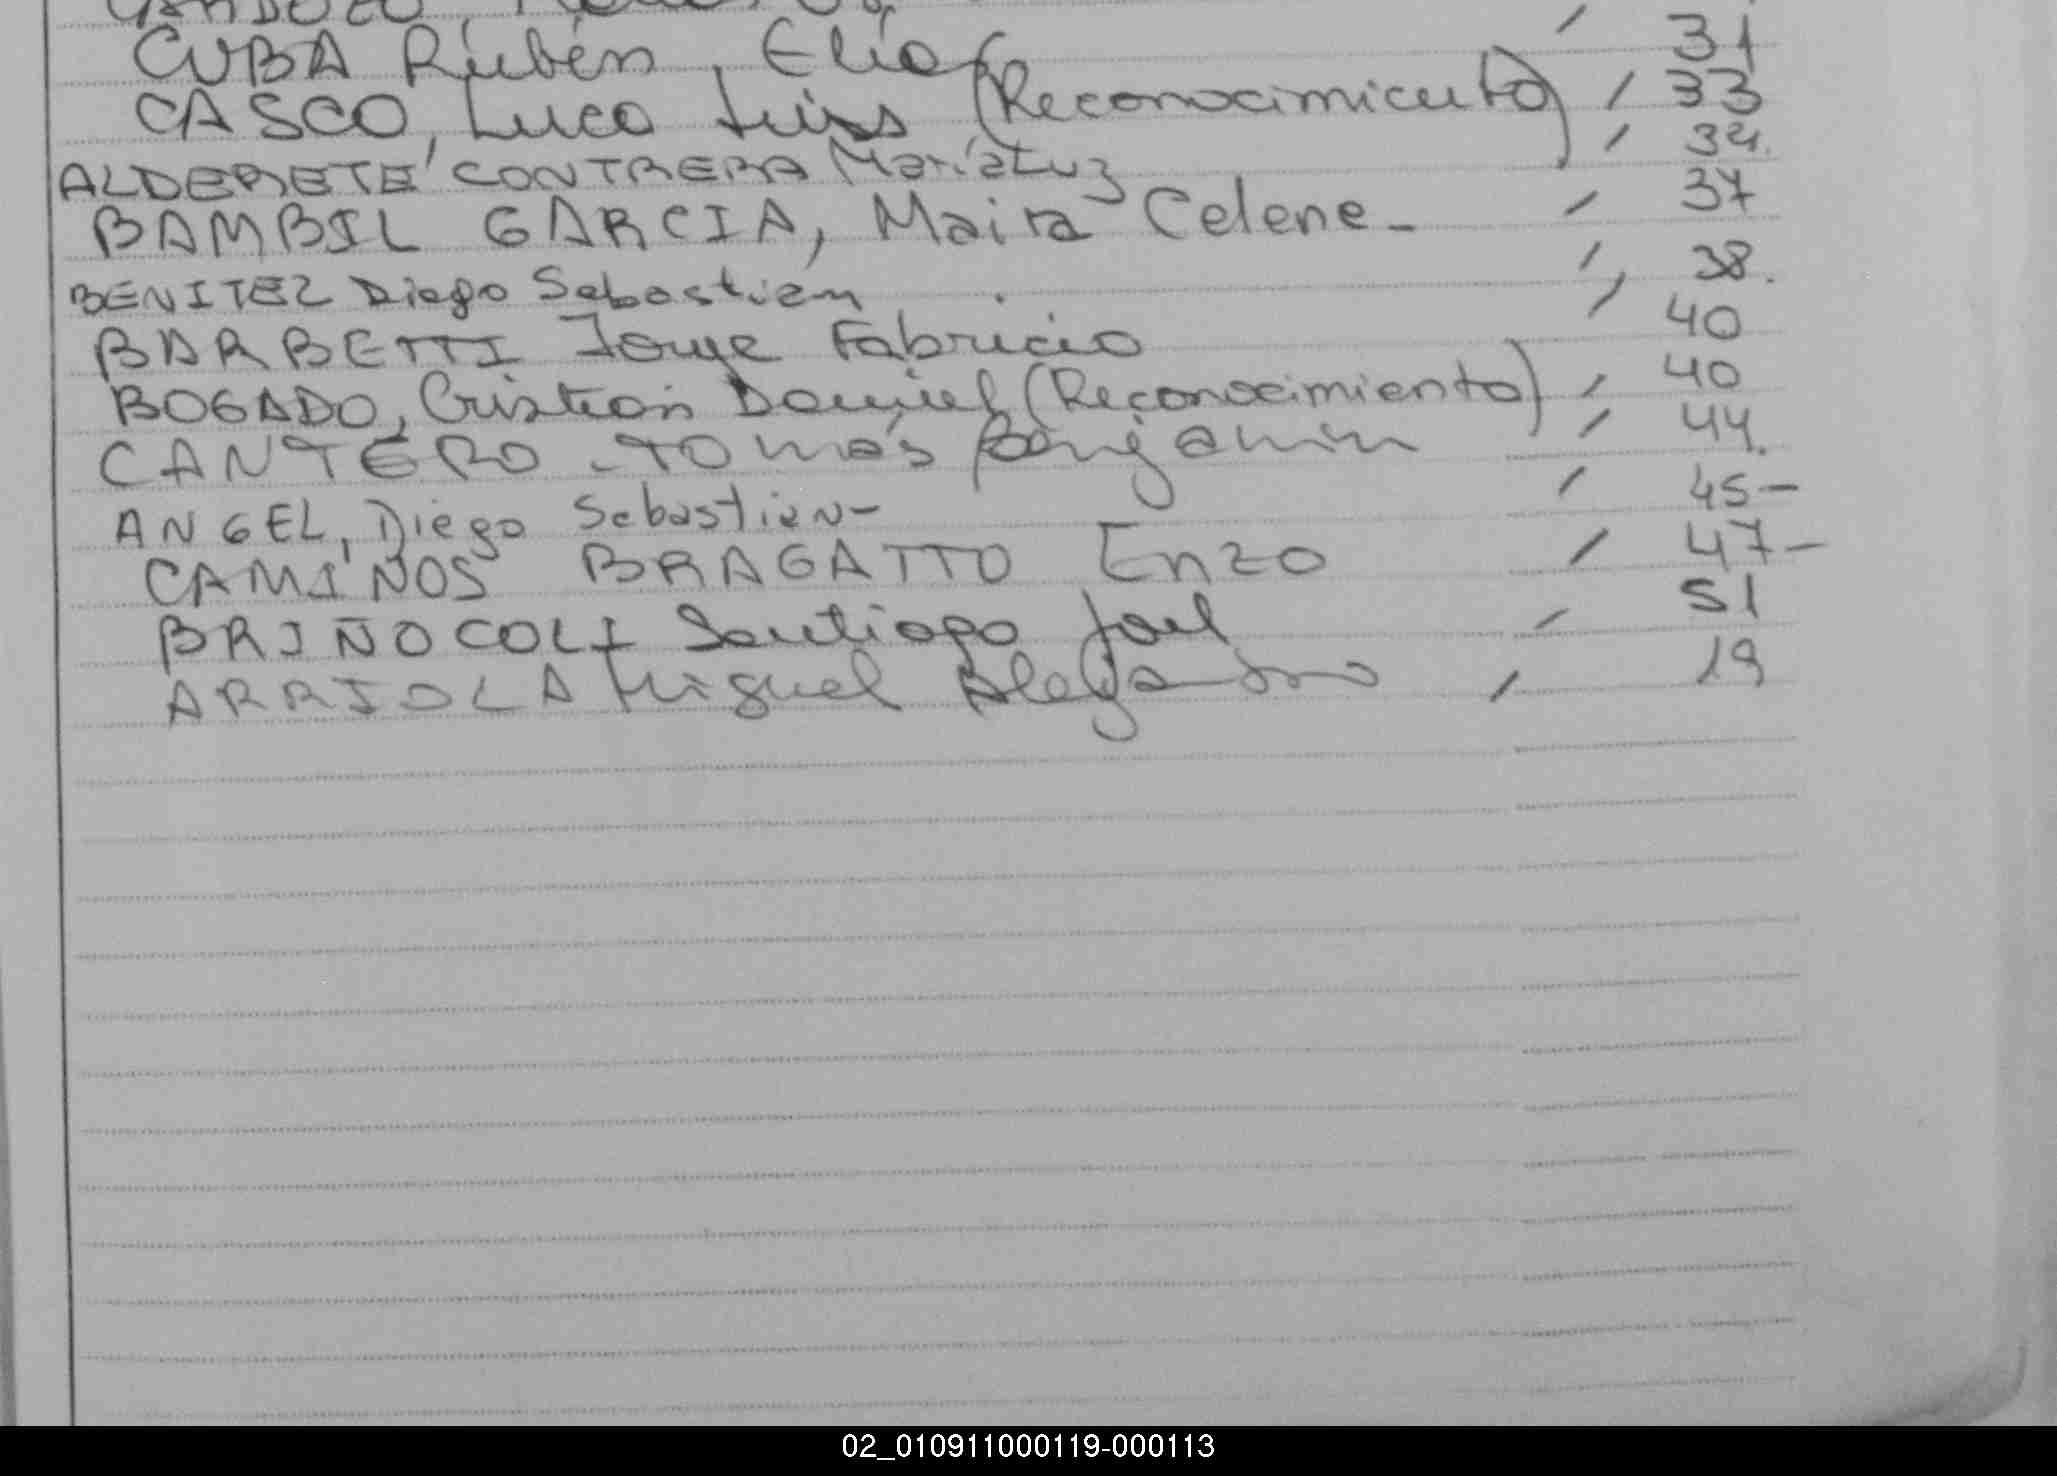 CUBA Rubén, Elías / 31
CASCO, Luca Luis (Reconocimiento) / 33
ALDERETE CONTRERA María Luz / 34.
BAMBIL GARCIA, Maira Celene - / 37
BENITEZ Diego Sebastián / 38.
BARBETTI Jorge Fabricio / 40
BOGADO, Cristian Daniel (Reconocimiento) / 40
CANTERO - Tomás Benjamin / 44.
ANGEL, Diego Sebastián - / 45 -
CAMINOS BRAGATTO Enzo / 47 -
BRIÑOCOLI Santiago Joel / 51
ARRIOLA Miguel Alejandro / 19
02_010911000119-000113